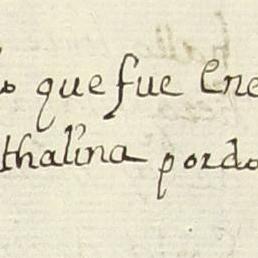 que fue Ene
thalina pordo